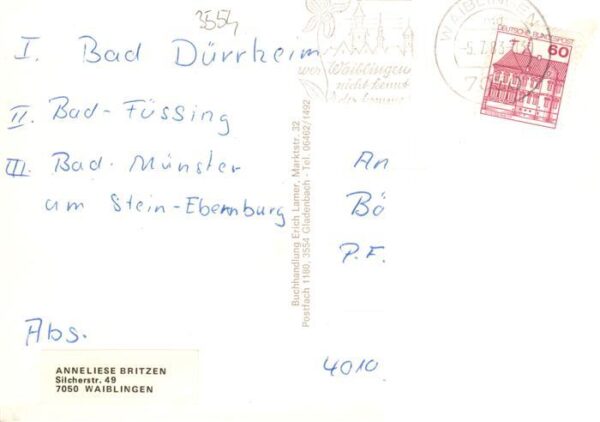 3554
I. Bad Dürrheim
II. Bad-Füssing
III. Bad-Münster
am Stein-Ebernburg
Abs.
ANNELIESE BRITZEN
Silcherstr. 49
7050 WAIBLINGEN
Buchhandlung Erich Lamer, Marktstr. 32
Postfach 1180, 3554 Gladenbach - Tel. 06462/1492
wer Waiblingen
nicht kennt
WAIBLINGEN
DEUTSCHE BUNDESPOST
60
An
Bö
P.F.
4010